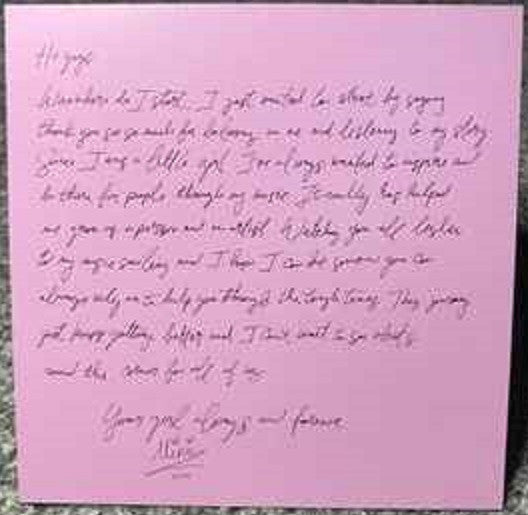 Hi guys
Where do I start. I just wanted to start by saying
thank you so so much for believing in me and listening to my story
since I was a little girl. I've always wanted to inspire and
be there for people through my music. It really has helped
me grow as a person and an artist. Watching you all listen
to my music smiling and I hope I can be someone you can
always rely on to help you through the tough times. This journey
just keeps getting better and I can't wait to see what's
around the corner for all of us
Your girl always and forever